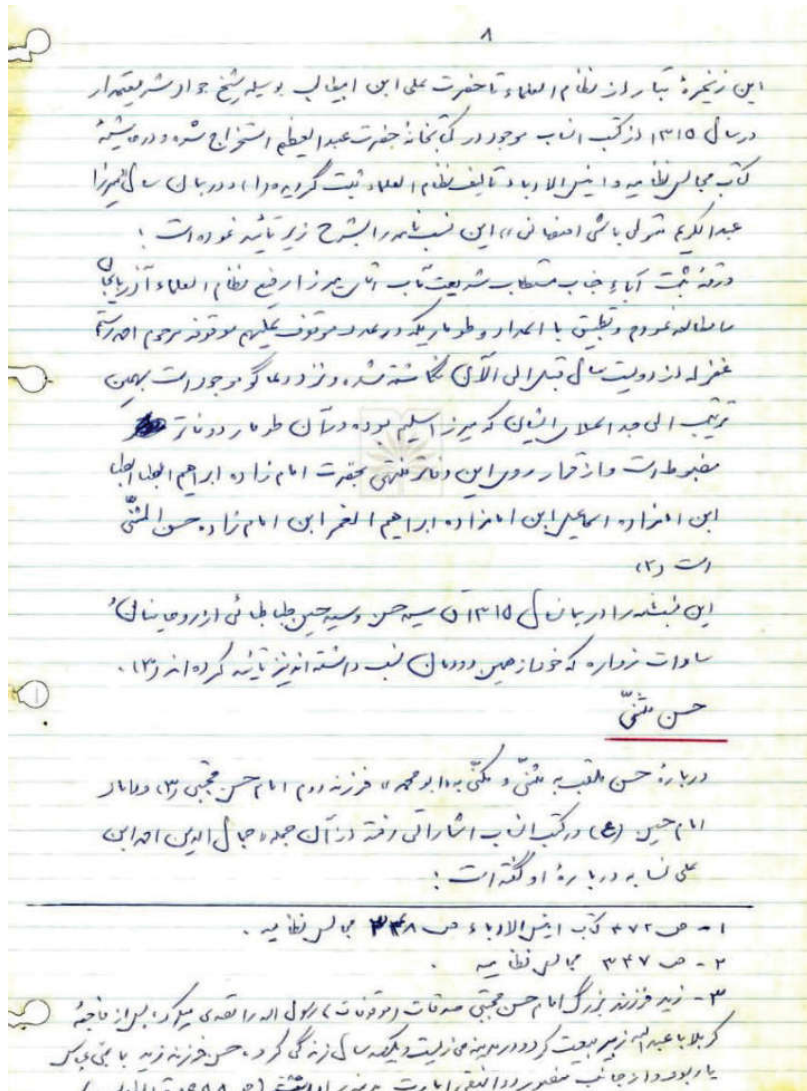 ۸
این زنجیرهٔ تبار از نظام العلماء تا حضرت علی ابن ابیطالب بوسیله شیخ جواد شریعتمدار
در سال ۱۳۱۵ از کتب انساب موجود در کتابخانهٔ حضرت عبدالعظیم استخراج شده و در حاشیهٔ
کتاب مجالس نظامیه و انیس الادباء تألیف نظام العلماء ثبت گردیده (۱) و در همان سال میرزا
عبدالکریم متولی باشی اصفهانی این نسب نامه را بشرح زیر تأئید نموده است :
ورقهٔ ثبت آباء جناب مستطاب شریعت مآب آقای میرزا رفیع نظام العلماء آذربایجان
را مطالعه نمودم و تطبیق با و طوماریکه در موقوف علیهم موقوفه مرحوم
غفرله از دویست سال قبل الی الآن نگاشته شده و نزد دعاگو موجود است بهمین
ترتیب الی جد اعلای ایشان که میرزا سلیم بوده در آن طومار و دفاتر
مضبوط است و از قرار روی این دفاتر منتهی بحضرت امام زاده ابراهیم الطباطبا
ابن امامزاده اسماعیل ابن امامزاده ابراهیم الغمر ابن امام زاده حسن المثنّی
است (۲)
این نسبنامه را در همان سال ۱۳۱۵ آقای سید حسن و سید حسین طباطبائی از روحانیان
سادات زواره که خود از همین دودمان نسب داشته اند نیز تأئید کرده اند (۳).
حسن مثنّی
دربارهٔ حسن ملقب به مثنّی و مکنّی به «ابو محمد» فرزند دوم امام حسن مجتبی (۳) و داماد
امام حسین (ع) در کتب انساب اشاراتی رفته از آن جمله جمال الدین احمد ابن
علی نسابه دربارهٔ او گفته است :
۱- ص ۴۷۲ کتاب انیس الادباء ص ۳۴۸ مجالس نظامیه .
۲- ص ۳۴۷ مجالس نظامیه .
۳- زید فرزند بزرگ امام حسن مجتبی صدقات (موقوفات) رسول الله را تصدی میکرد، پس از فاجعهٔ
کربلا با عبدالله زبیر بیعت کرد و در مدینه می زیست و یکصد سال زندگی کرد، حسن فرزند زید با بنی عباس
یار بود و از جانب منصور دوانیقی امارت مدینه را داشت